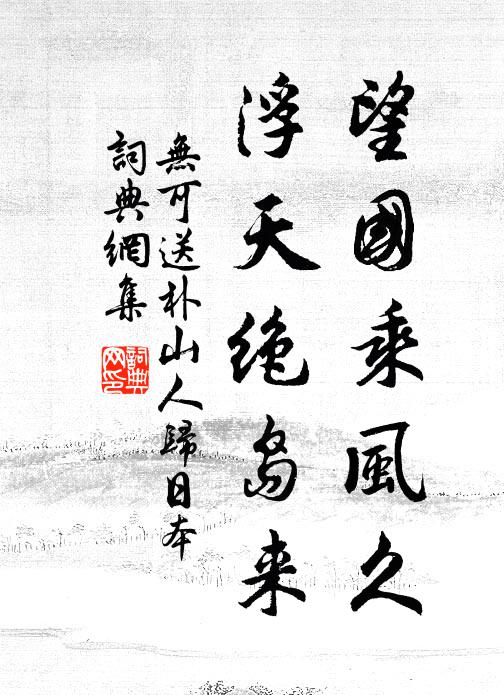 望國乘風久
浮天绝岛来
無可送朴山人歸日本
詞典網集
詞典網印